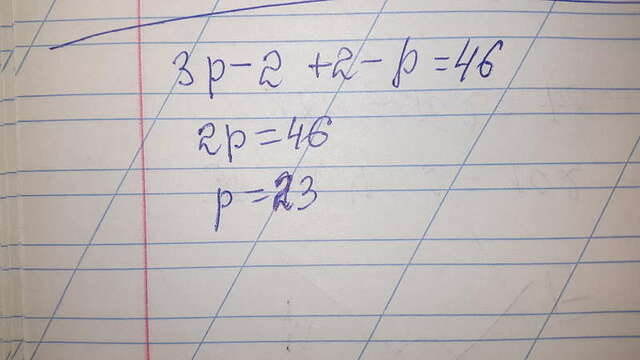 3p-2 +2-p=46
2p=46
p=23